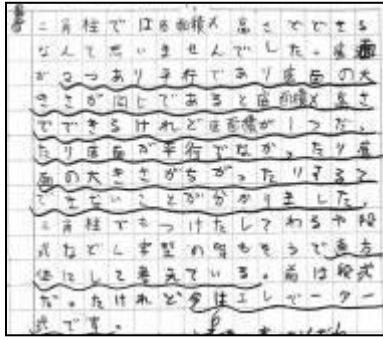 三角柱では底面積×高さでできる
なんて思いませんでした。底面
が2つあり平行であり底面の大
きさが同じであると底面積×高さ
でできるけれど底面積が1つだ
たり底面が平行でなかったり底
面の大きさがちがったりすると
できないことが分かりました。
三角柱でもつけたしてわるや段
式などL字型の時もそうで直方
体にして考えている。前は段式
だったけれど今はエレベーター
式です。